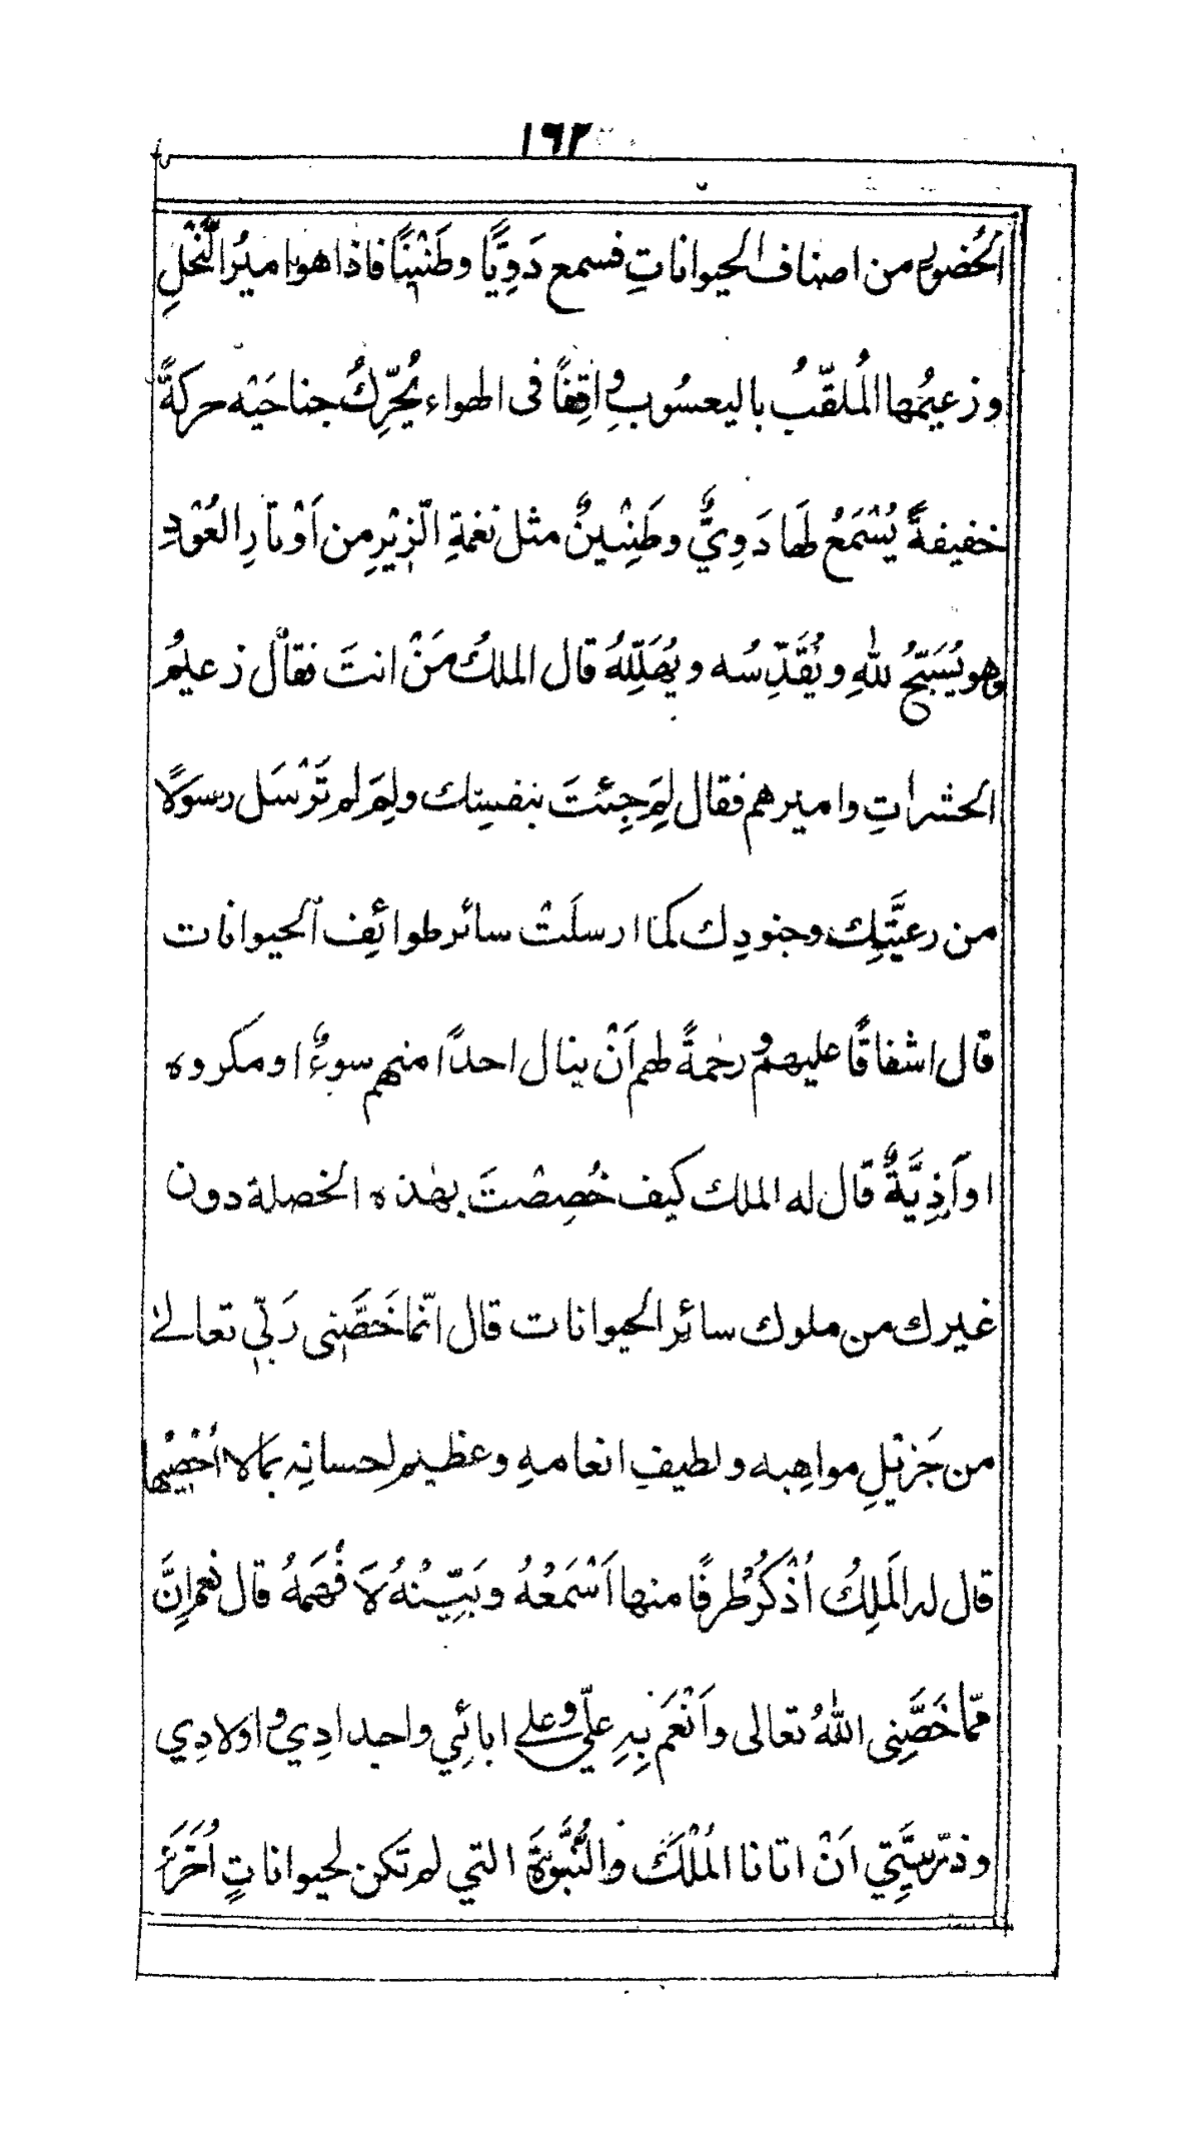 ١٦٢
الحُضورِ من اصناف الحيواناتِ فسمع دَوِيًّا وطَنْيْنًا فاذا هوا ميرُ النَّحْلِ
وزعيمُها المُلقّبُ باليعسُوبِ واقِفًا فى الهواء يُحَرِّكُ جناحَيْه حركةً
خفيفةً يُسْمَعُ لَها دَوِيٌّ وطَنِيْنٌ مثل نغمةِ الزِّيْرِ من اَوْتارِ العُوْدِ
وهو يُسَبّحُ للهِ ويُقَدِّسُه ويُهَلِّلهُ قال الملكُ مَنْ انتَ فقال زعيمُ
الحشراتِ واميرهم فقال لِمَ جِئتَ بنفسِك ولِمَ لم تَرْسَل رسولًا
من رعيَّتِك وجنودِك كما ارسلَتْ سائر طوائِف الحيوانات
قال اشفاقًا عليهم ورحمةً لهم اَنْ ينال احدًا منهم سوءٌ او مكروه
او اَذِيَّةٌ قال له الملك كيف خُصِصْتَ بهٰذه الخصلة دون
غيرك من ملوك سائر الحيوانات قال انّما خَصَّنِى رَبّي تعالےٰ
من جَزيْلِ مواهِبه ولطيفِ انعامهِ وعظيم احسانِه بما لا اُحْصِيْها
قال له المَلِكُ اُذْكُرْ طرفًا منها اَسْمَعْهُ وبَيِّنْهُ لاَفْهَمَهُ قال نعم اِنَّ
ممّا خَصَّنِى اللهُ تعالى واَنْعَمَ بِه عليّ وعلےٰ ابائِي واجدادِي واولادِي
وذرّيتِي اَنْ اتانا المُلْكَ والنُّبُوَّةَ التي لم تَكن لحيواناتٍ اُخَرَ